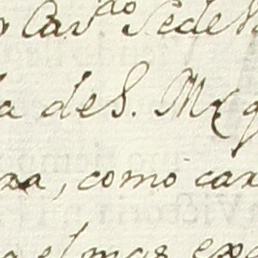 Car.do Sede
a de S. Mg
za, como car
el mas exa